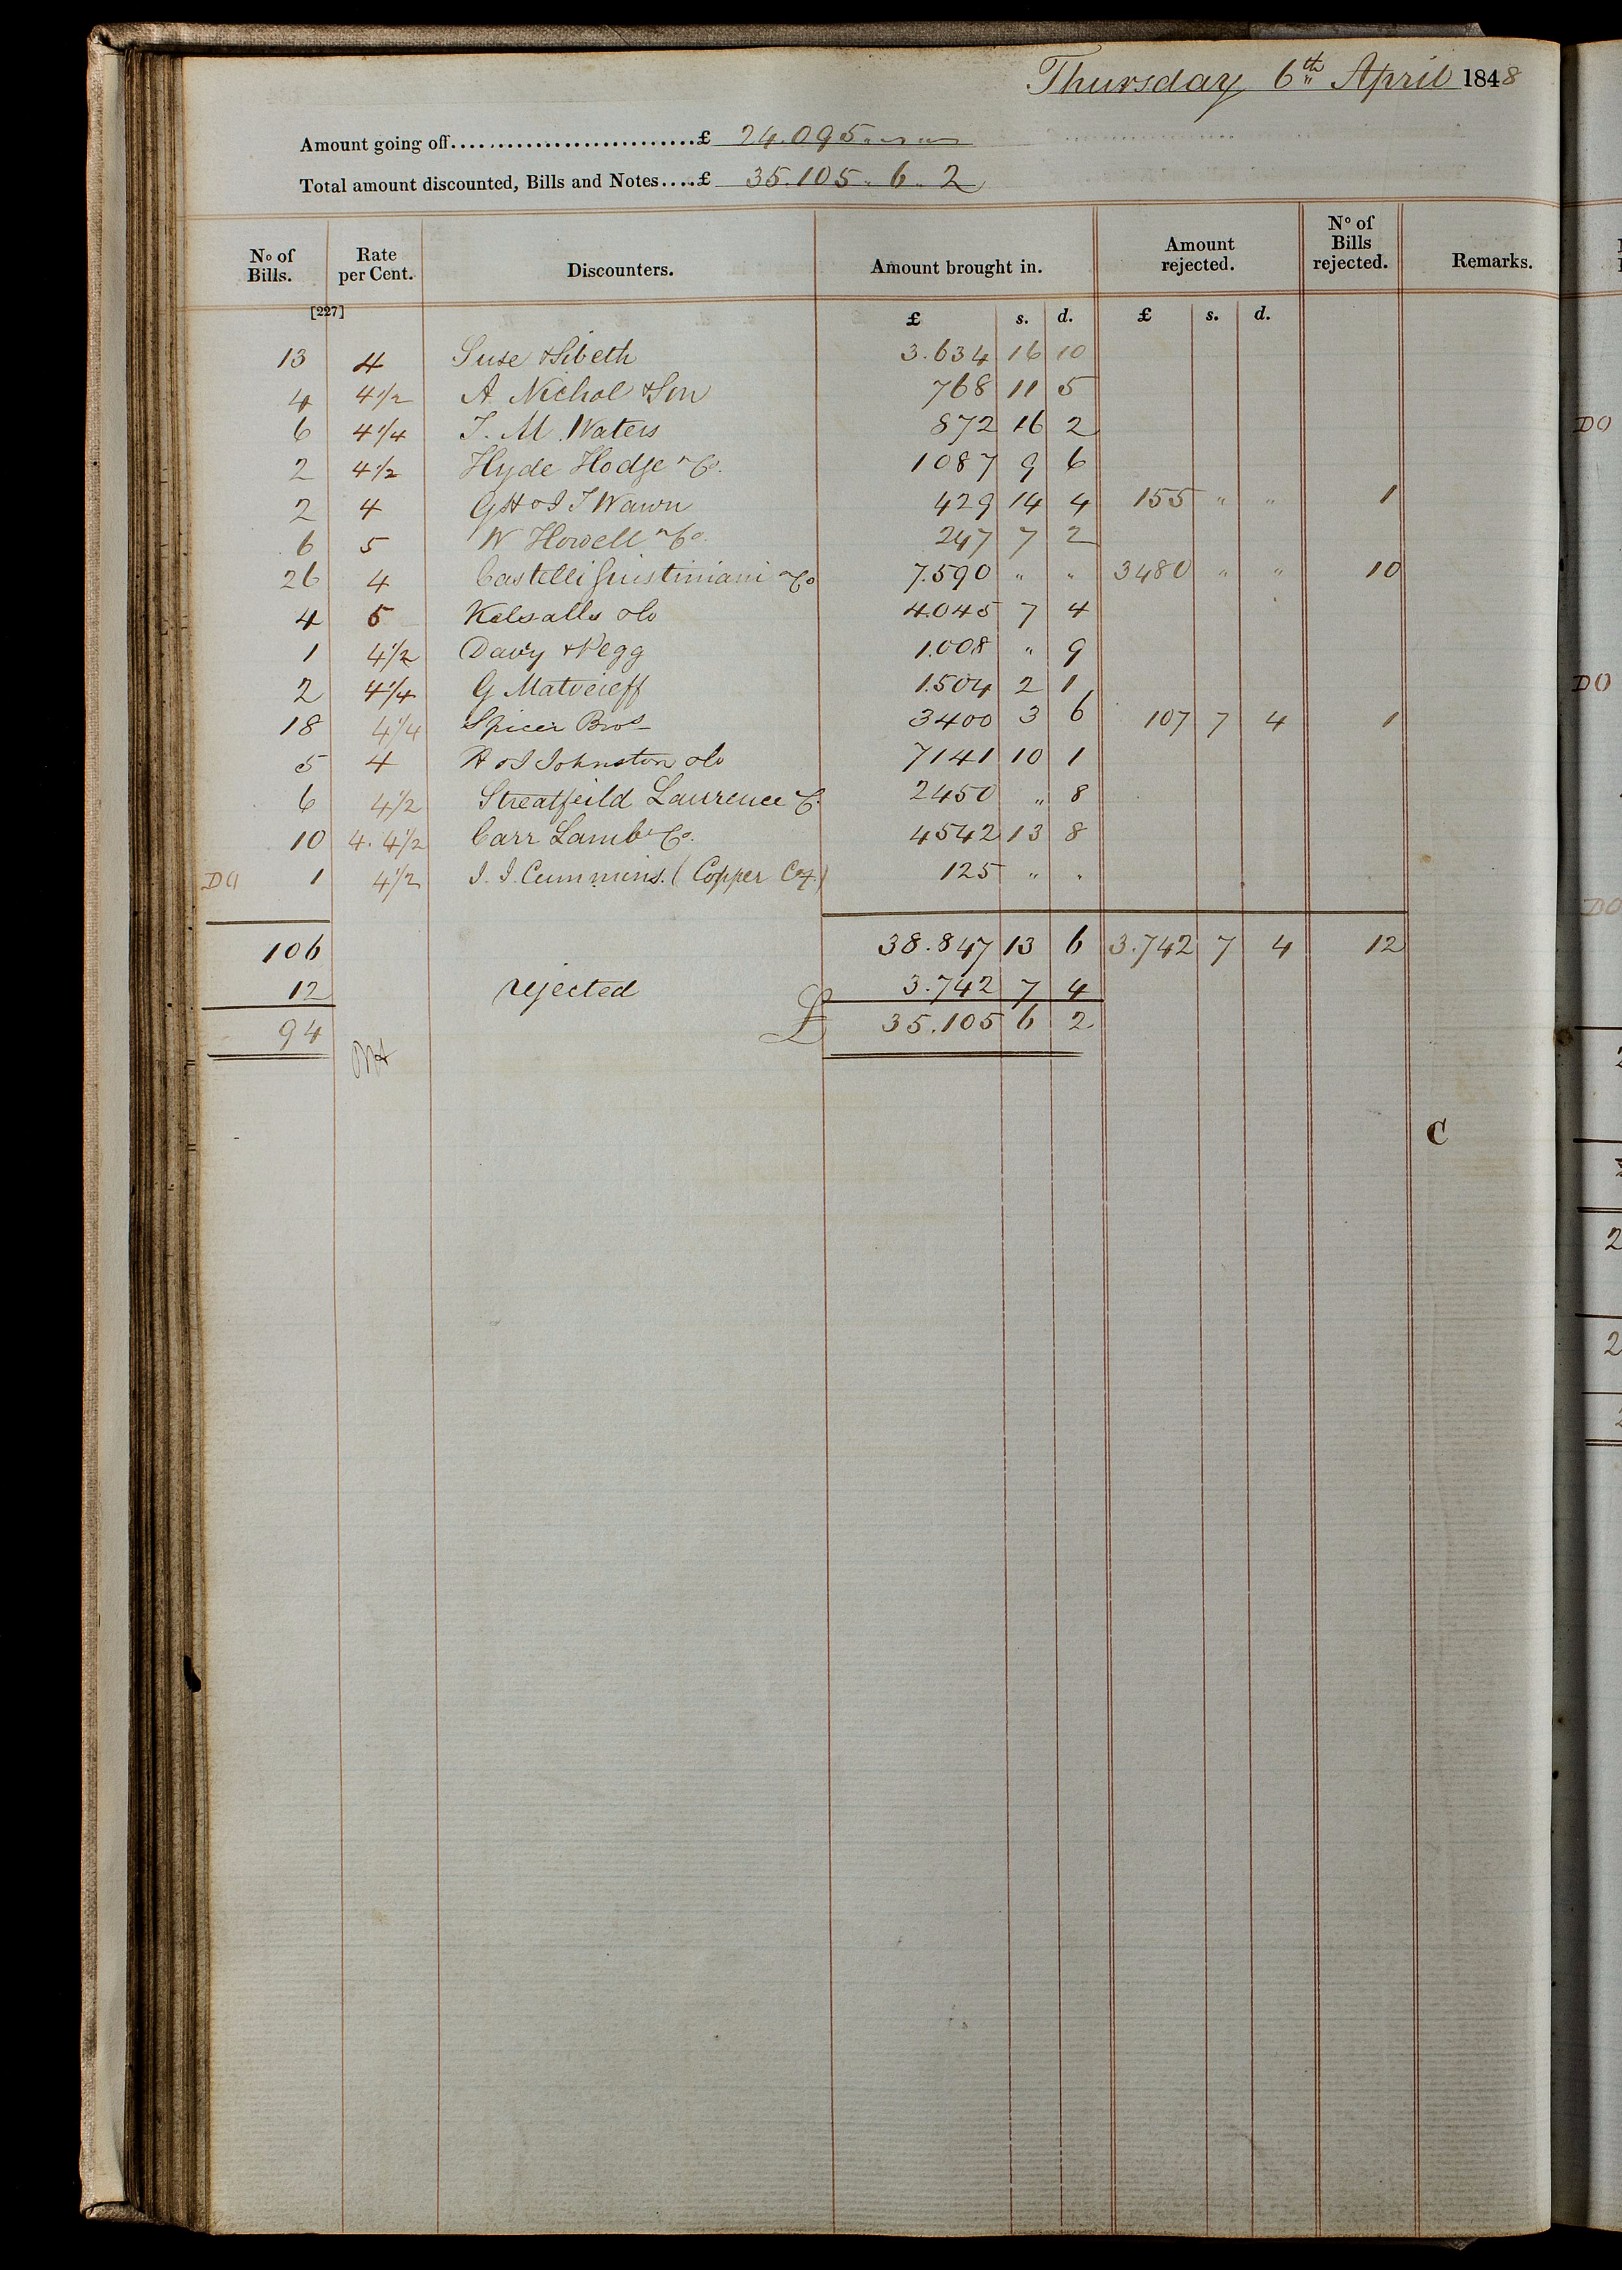 Thursday 6th April 1848
Amount going off..........................£ 24.095 " "
Total amount discounted, Bills and Notes....£ 35.105 " 6 " 2
No of Bills. Rate per Cent. Discounters. Amount brought in. Amount rejected. No of Bills rejected. Remarks.
[227] £ s. d. £ s. d.
13 4 Suse & Sibeth 3.634 16 10
4 4 1/2 A Nichol & Son 768 11 5
6 4 1/4 T. M. Waters 872 16 2
2 4 1/2 Hyde Hodge & Co. 1087 9 6
2 4 GH & I T Wawn 429 14 4 155 " " 1
6 5 W Howell & Co. 247 7 2
26 4 Castelli Giustiniani & Co 7.590 " " 3480 " " 10
4 5 Kelsalls & Co 4.045 7 4
1 4 1/2 Davy & Pegg 1.008 " 9
2 4 1/4 G Matveieff 1.504 2 1
18 4 1/4 Spicer Bros 3400 3 6 107 7 4 1
5 4 H & I Johnston & Co 7141 10 1
6 4 1/2 Streatfeild Laurence & C. 2450 " 8
10 4. 4 1/2 Carr Lamb & Co. 4542 13 8
DO 1 4 1/2 J. J. Cummins. (Copper Coy.) 125 " "
106 38.847 13 6 3.742 7 4 12
12 rejected 3.742 7 4
94 £ 35.105 6 2
C
DO
DO
DO
2
2